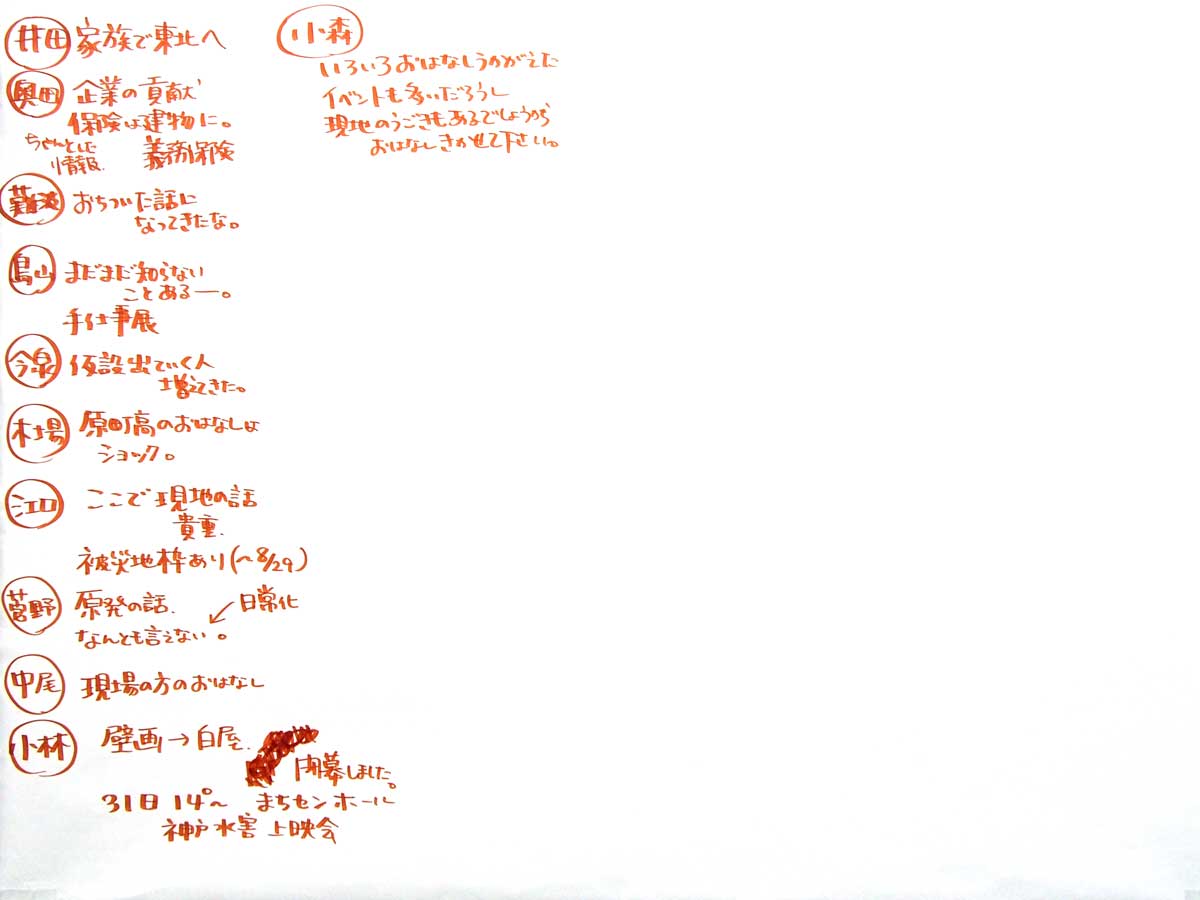 井出 家族で東北へ
奥田 企業の貢献
保険は建物に。
ちゃんとした
情報. 義務保険
おちついた話に
なってきたな。
島山 まだまだ知らない
ことあるー。
手仕事展
今泉 仮設出ていく人
増えてきた。
木場 原町高のおはなしは
ショック。
江口 ここで現地の話
貴重.
被災地枠あり(~8/29)
菅野 原発の話. ↙日常化
なんとも言えない。
中尾 現場の方のおはなし
小林 壁画→白屋.
閉幕しました。
31日 14°~ まちセンホール
神戸水害上映会
小森
いろいろおはなしうかがえた
イベントも多いだろうし
現地のうごきもあるでしょうから
おはなしきかせて下さい。